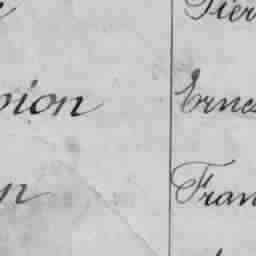 Pier
pion Ernes
n Fran